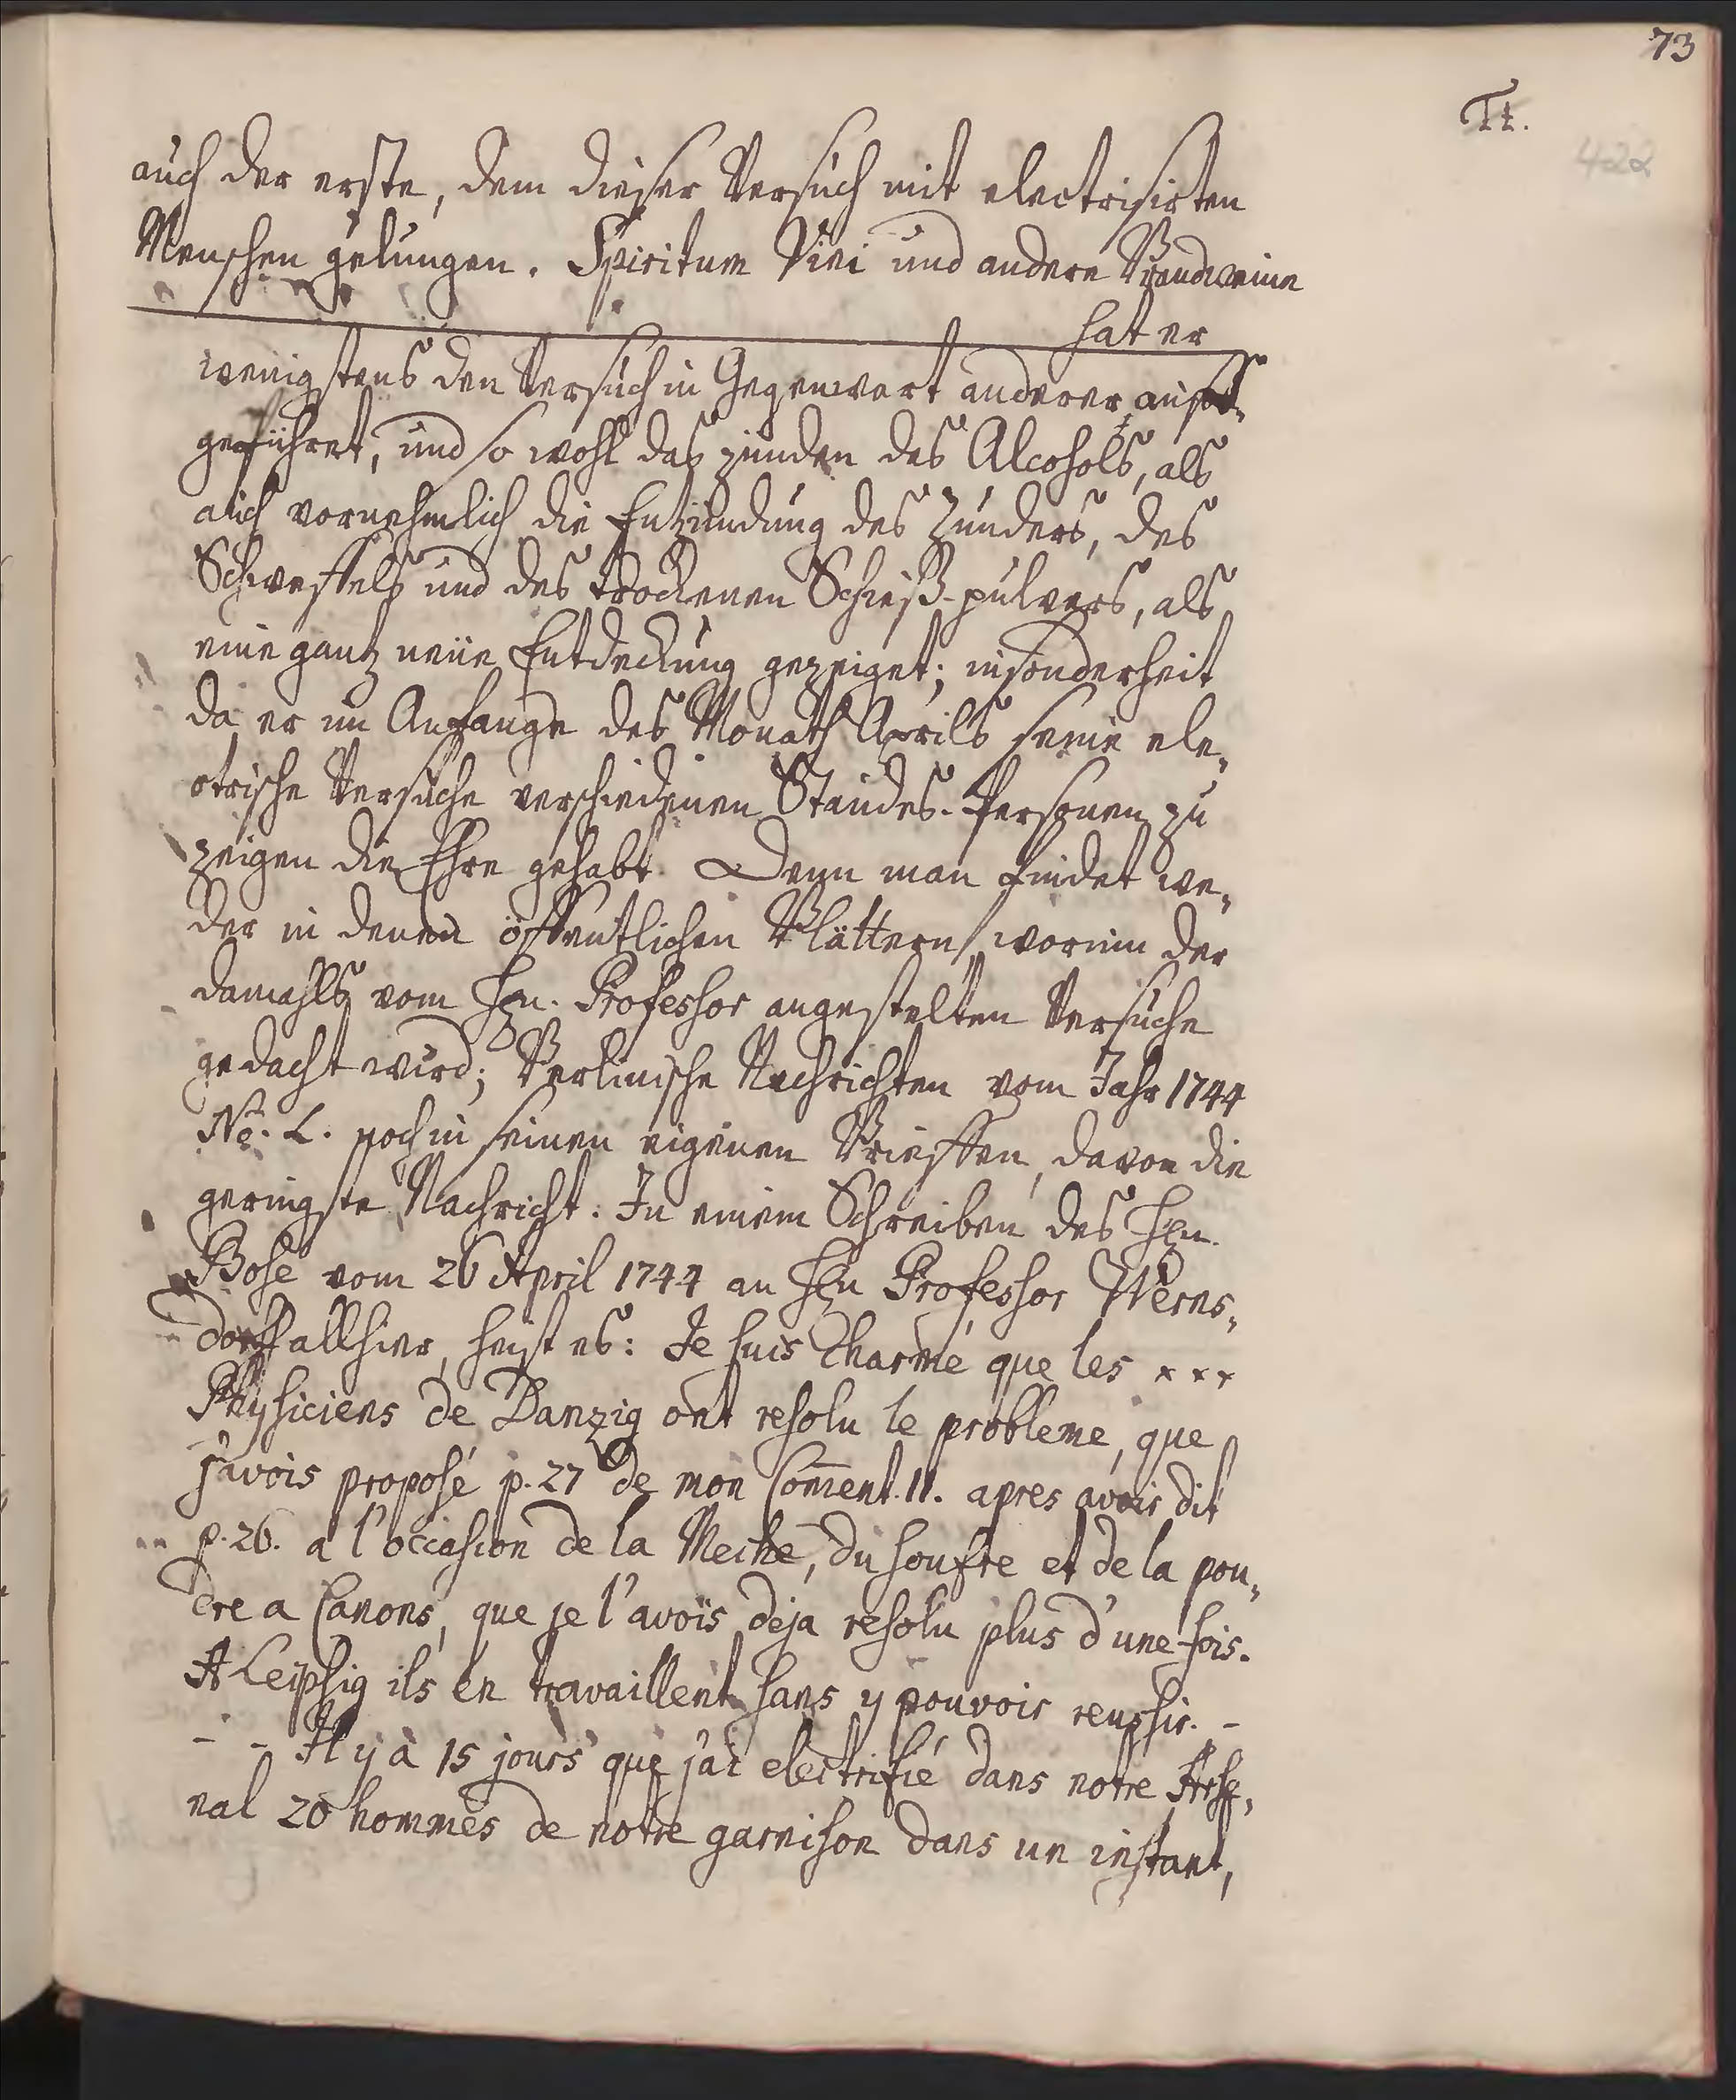 73
Tt.
422
auch der erste, dem dieser Versuch mit electrisirten
Menschen gelungen. Spiritum Vini und andere Brandweine
hat er
wenigstens den Versuch in Gegenwart anderer auß-
geführet, und so wohl das zünden des Alcohols, als
auch vornehmlich die Entzündung des Zunders, des
Schweffels und des trockenen Schieß-pulvers, als
eine gantz neüe Entdeckung gezeiget; insonderheit
da er im Anfange des Monaths Aprils seine ele-
ctrische Versuche verschiedenen Standes-Personen zu
zeigen die Ehre gehabt. Denn man findet we-
der in denen öffentlichen Blättern, worinn der
damahls vom Hrn. Professor angestelten Versuche
gedacht wird; Berlinische Nachrichten vom Jahr 1744
No. L. noch in seinen eigenen Brieffen, davon die
geringste Nachricht. In einem Schreiben des Hrn.
Bose vom 26 April 1744 an Hrn Professor Werns-
dorff allhier, heist es: Je suis Charmé que les ***
Physiciens de Danzig ont resolu le probleme, que
j'avois proposé p. 27 de mon Coment. II. apres avoir dit
p. 26. a l'occasion de la Meche, du soufre et de la pou-
dre a Canons, que je l'avois deja resolu plus d'une fois.
A Leipsig ils en travaillent sans y pouvoir reussir. -
- - Il y à 15 jours que j'ai electrifié dans notre Arse-
nal 20 hommes de notre garnison dans un instant,